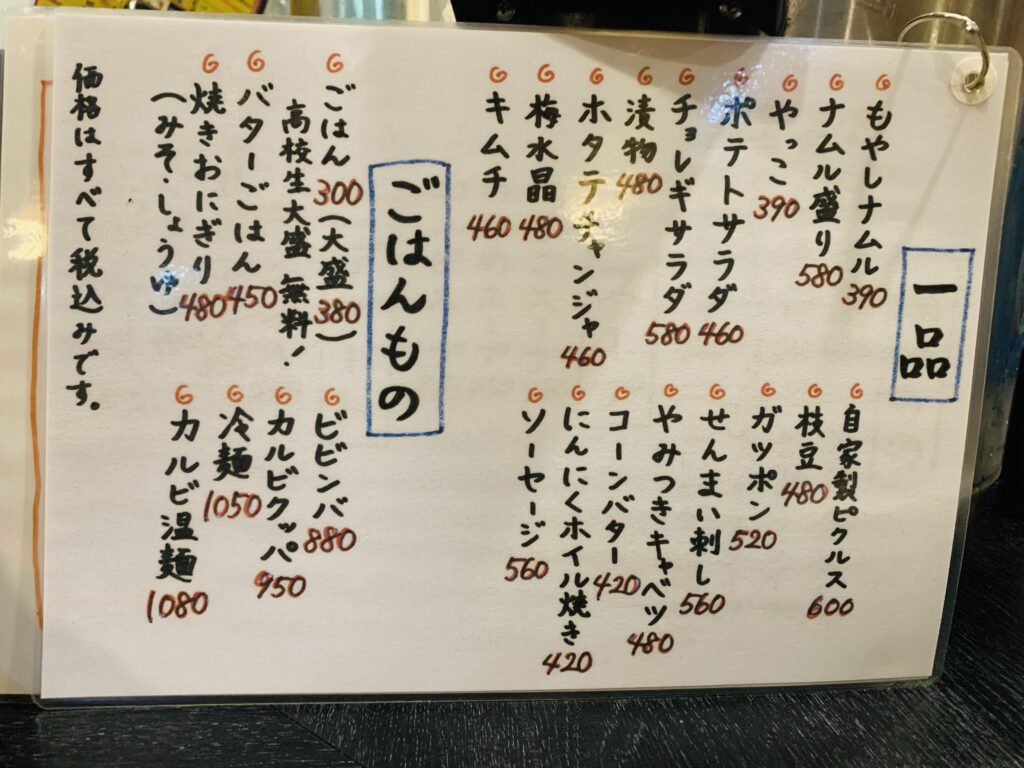 一品
もやしナムル 390
ナムル盛り 580
やっこ 390
ポテトサラダ 460
チョレギサラダ 580
漬物 480
ホタテチャンジャ 460
梅水晶 480
キムチ 460
自家製ピクルス 600
枝豆 480
ガッポン 520
せんまい刺し 560
やみつきキャベツ 480
コーンバター 420
にんにくホイル焼き 420
ソーセージ 560
ごはんもの
ごはん 300(大盛 380)
高校生大盛 無料!
バターごはん 450
焼きおにぎり 480
(みそ・しょうゆ)
ビビンバ 880
カルビクッパ 950
冷麺 1050
カルビ温麺 1080
価格はすべて税込みです。